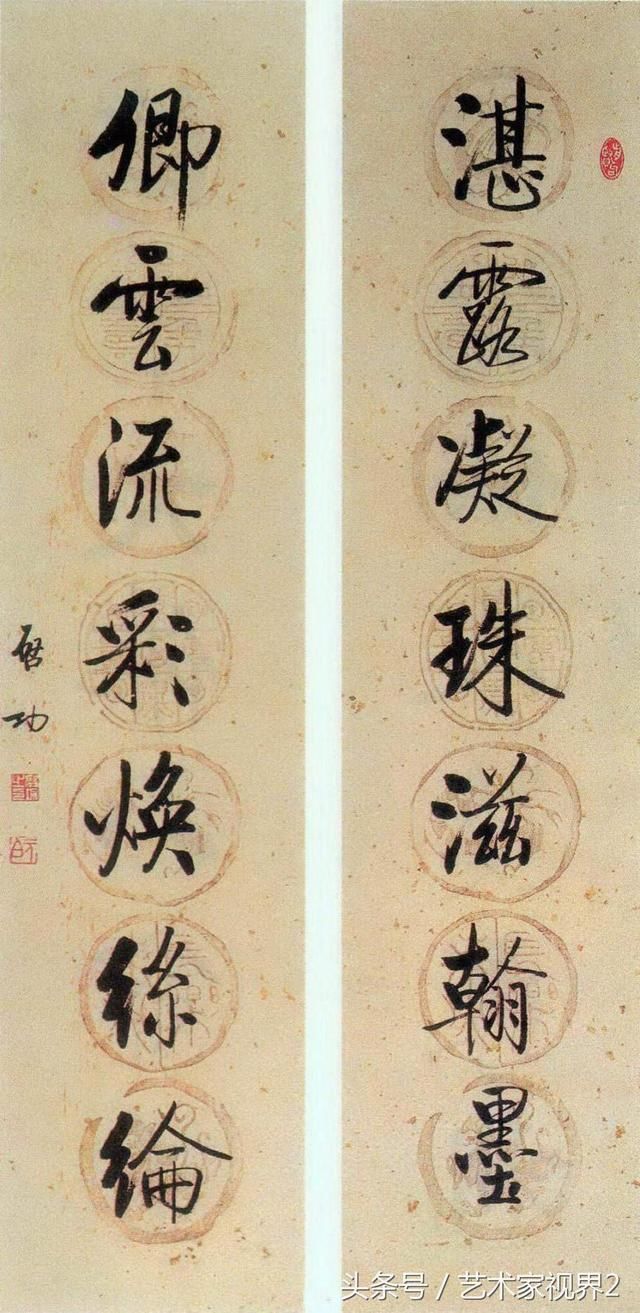 湛露凝珠滋翰墨
卿雲流彩焕絲綸
启功
头条号 / 艺术家视界2